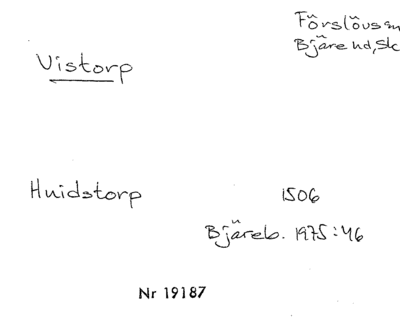 Förslövs sn
Bjäre hd, Sk
Vistorp
Huidstorp 1506
Bjäreb. 1975:46
Nr 19187